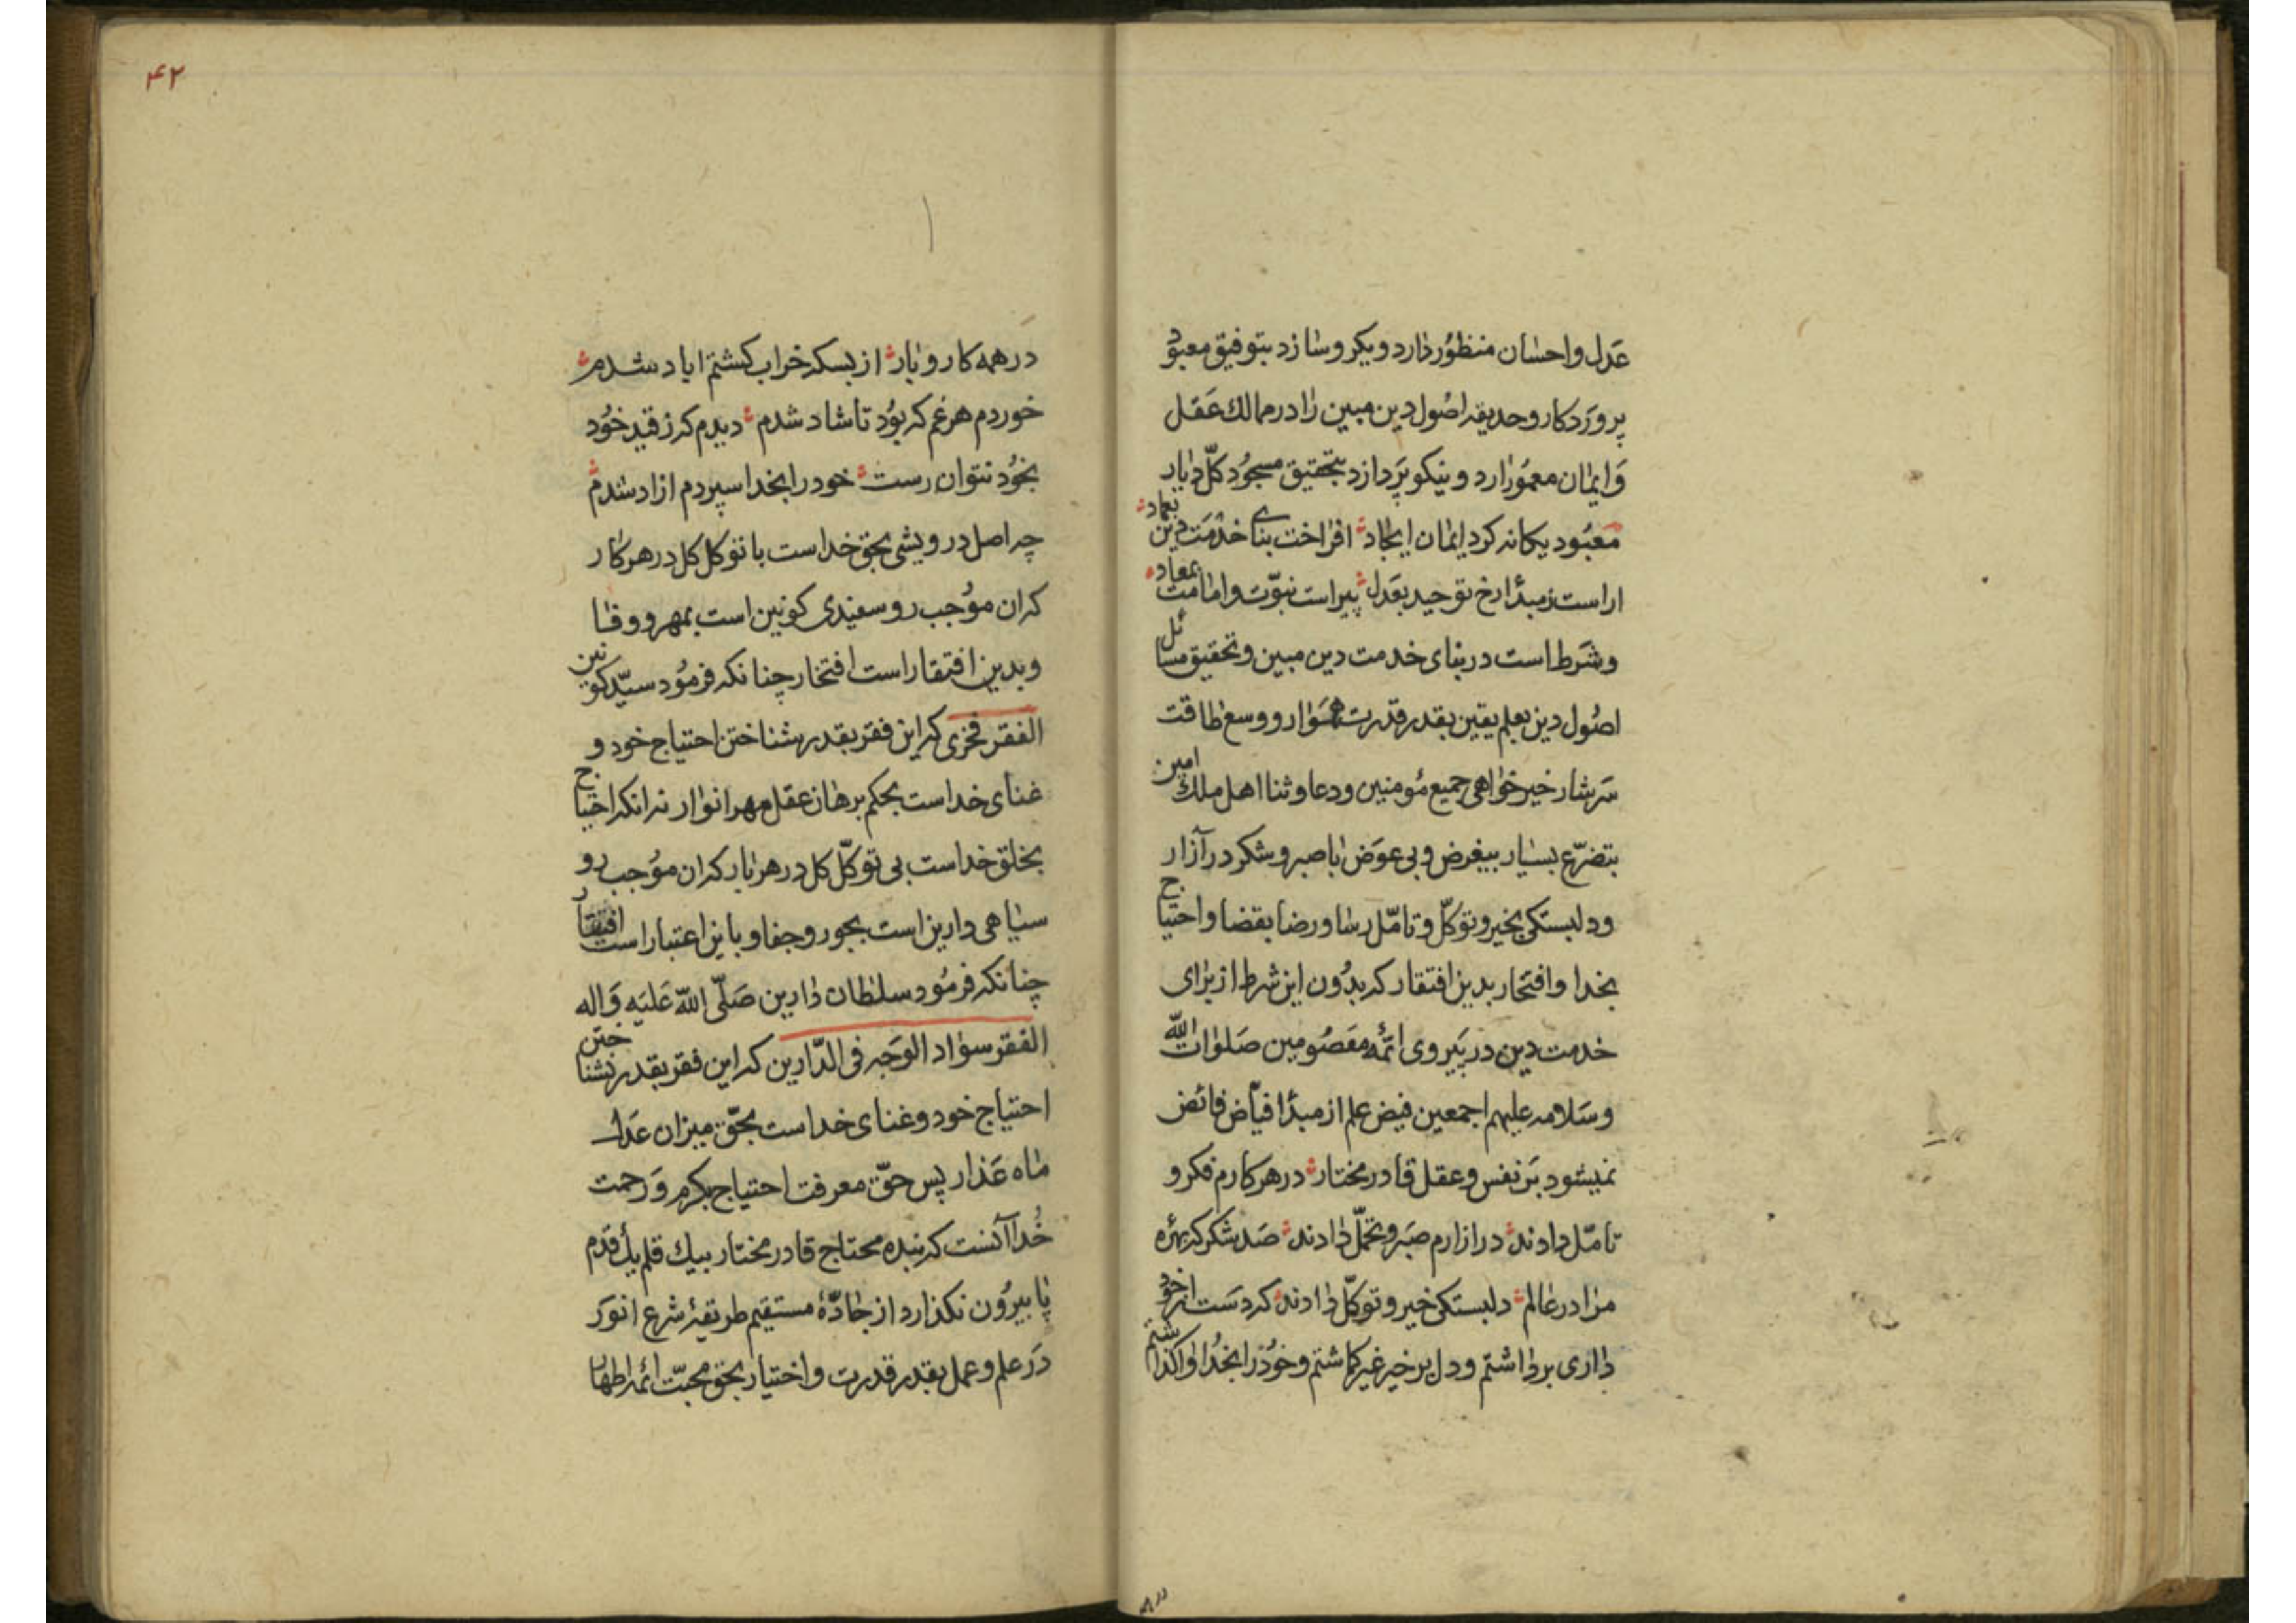 عَدل واحسٰان منظوُر دٰارد ویکروسٰازد بتوفیق معبوُد
پروَردکار وحدیقه اصُول دین مبین رٰا در ممالك عَقل
وَایمٰان معموُرٰارد ونیکو پَردازد بتحقیق مسجوُد کلّ دٰیار
معبُود یکانه کرد ایمٰان ایجٰاد افراخت بنای خدمَت دین بعماد
اراست زمبدأ رخ توحید بعَدل پیراست نبوّت وامٰامت بمعاد
وشَرط است در بنای خدمت دین مبین وتحقیق مسائل
اصُول دین بعلم یقین بقدر قدرت هموَار ووسع طاقت
سَرشار خیرخوٰاهی جمیع مُومنین ودعا وثنا اهل ملك امین
بتضرّع بسیٰار بیغرض وبی عوَض باصبر وشکر در آزار
ودلبستکی بخیر وتوکّل وتامّل رسٰا ورضا بقضا واحتیاج
بخدا وافتخار بدین افتقار که بدُون این شرط از برٰای
خدمت دین در پَیروی ائمّه معَصُومین صَلوٰات الله
وسَلامه علیهم اجمعین فیض علم از مبدأ فیّاض فائض
نمیشود بَر نفس وعقل قادر مختار در هر کارم فکر و
تامّل دادند در ازارم صَبر وتحمّل دٰادند صَد شکر که بهرُه
مرٰا در عٰالم دلبستکی خیر وتوکّل دٰادند که دَست از خود
دٰاری بردٰاشتم ودل بر خیر غیر کماشتم وخوُد را بخدُا واکذاشتم
در همه
۴۲
در همه کار وبٰار از بسکه خراب کشتم اباد شدم
خوردم هر غم که بوُد تا شاد شدم دیدم که ز قید خوُد
بخوُد نتوان رست خود را بخدا سپردم ازاد شدم
چه اصل درویشی بحق خداست با توکل کل در هر کار
که ان موُجب روسفیدی کونین است بمهر ووفٰا
وبدین افتقار است افتخار چنانکه فرموُد سیّد کونین
الفقر فخری که این فقر بقدر شناختن احتیاج خود و
غنای خداست بحکم برهان عقل مهر انوٰار نه انکه احتیاج
بخلق خداست بی توکّل کل در هر بٰار که ان موُجب رو
سیٰاهی دارین است بجور وجفا وباین اعتبار است افتقار
چنانکه فرموُد سلطان دٰارین صَلّی الله عَلیَه وَاله
الفقر سوٰاد الوَجه فی الدّارین که این فقر بقدر نشناختن
احتیاج خود وغنای خداست بحّق میزان عَدل
مٰاه عَذار پس حّق معرفت احتیاج بکرم وَرحمت
خُدا آنست که بنده محتاج قادر مختار بیك قلم یك قدَم
پٰا بیرُون نکذارد از جٰادّهٔ مستقیم طریقهٔ شرع انوَر
دَر علم وعمل بقدر قدرت واختیار بحق محبّت ائمه اطهٰار